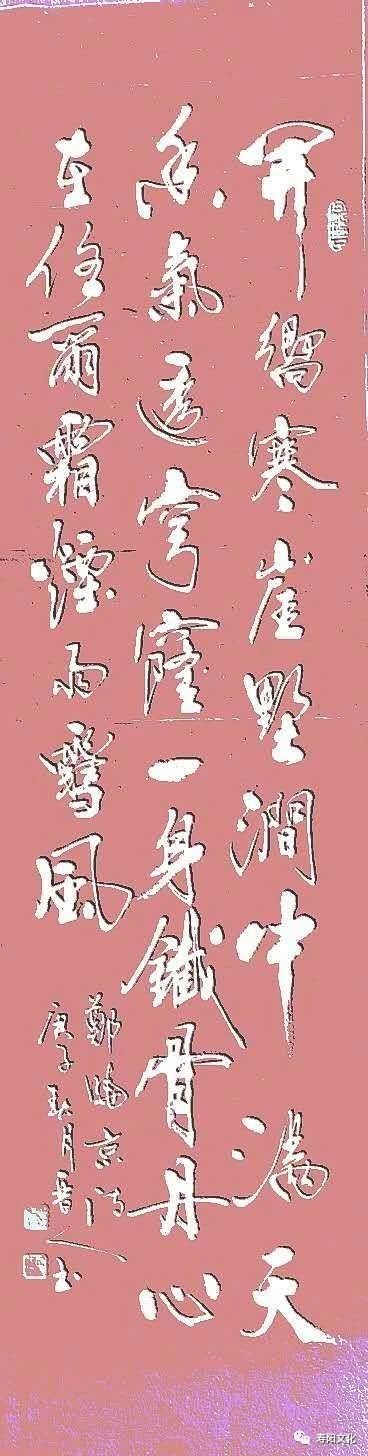 開嚮寒崖野澗中滿天
香氣透穹窿一身鐵骨丹心
在任爾霜煙雨雪風
鄭京詩
庚子秋月晋人書
寿阳文化